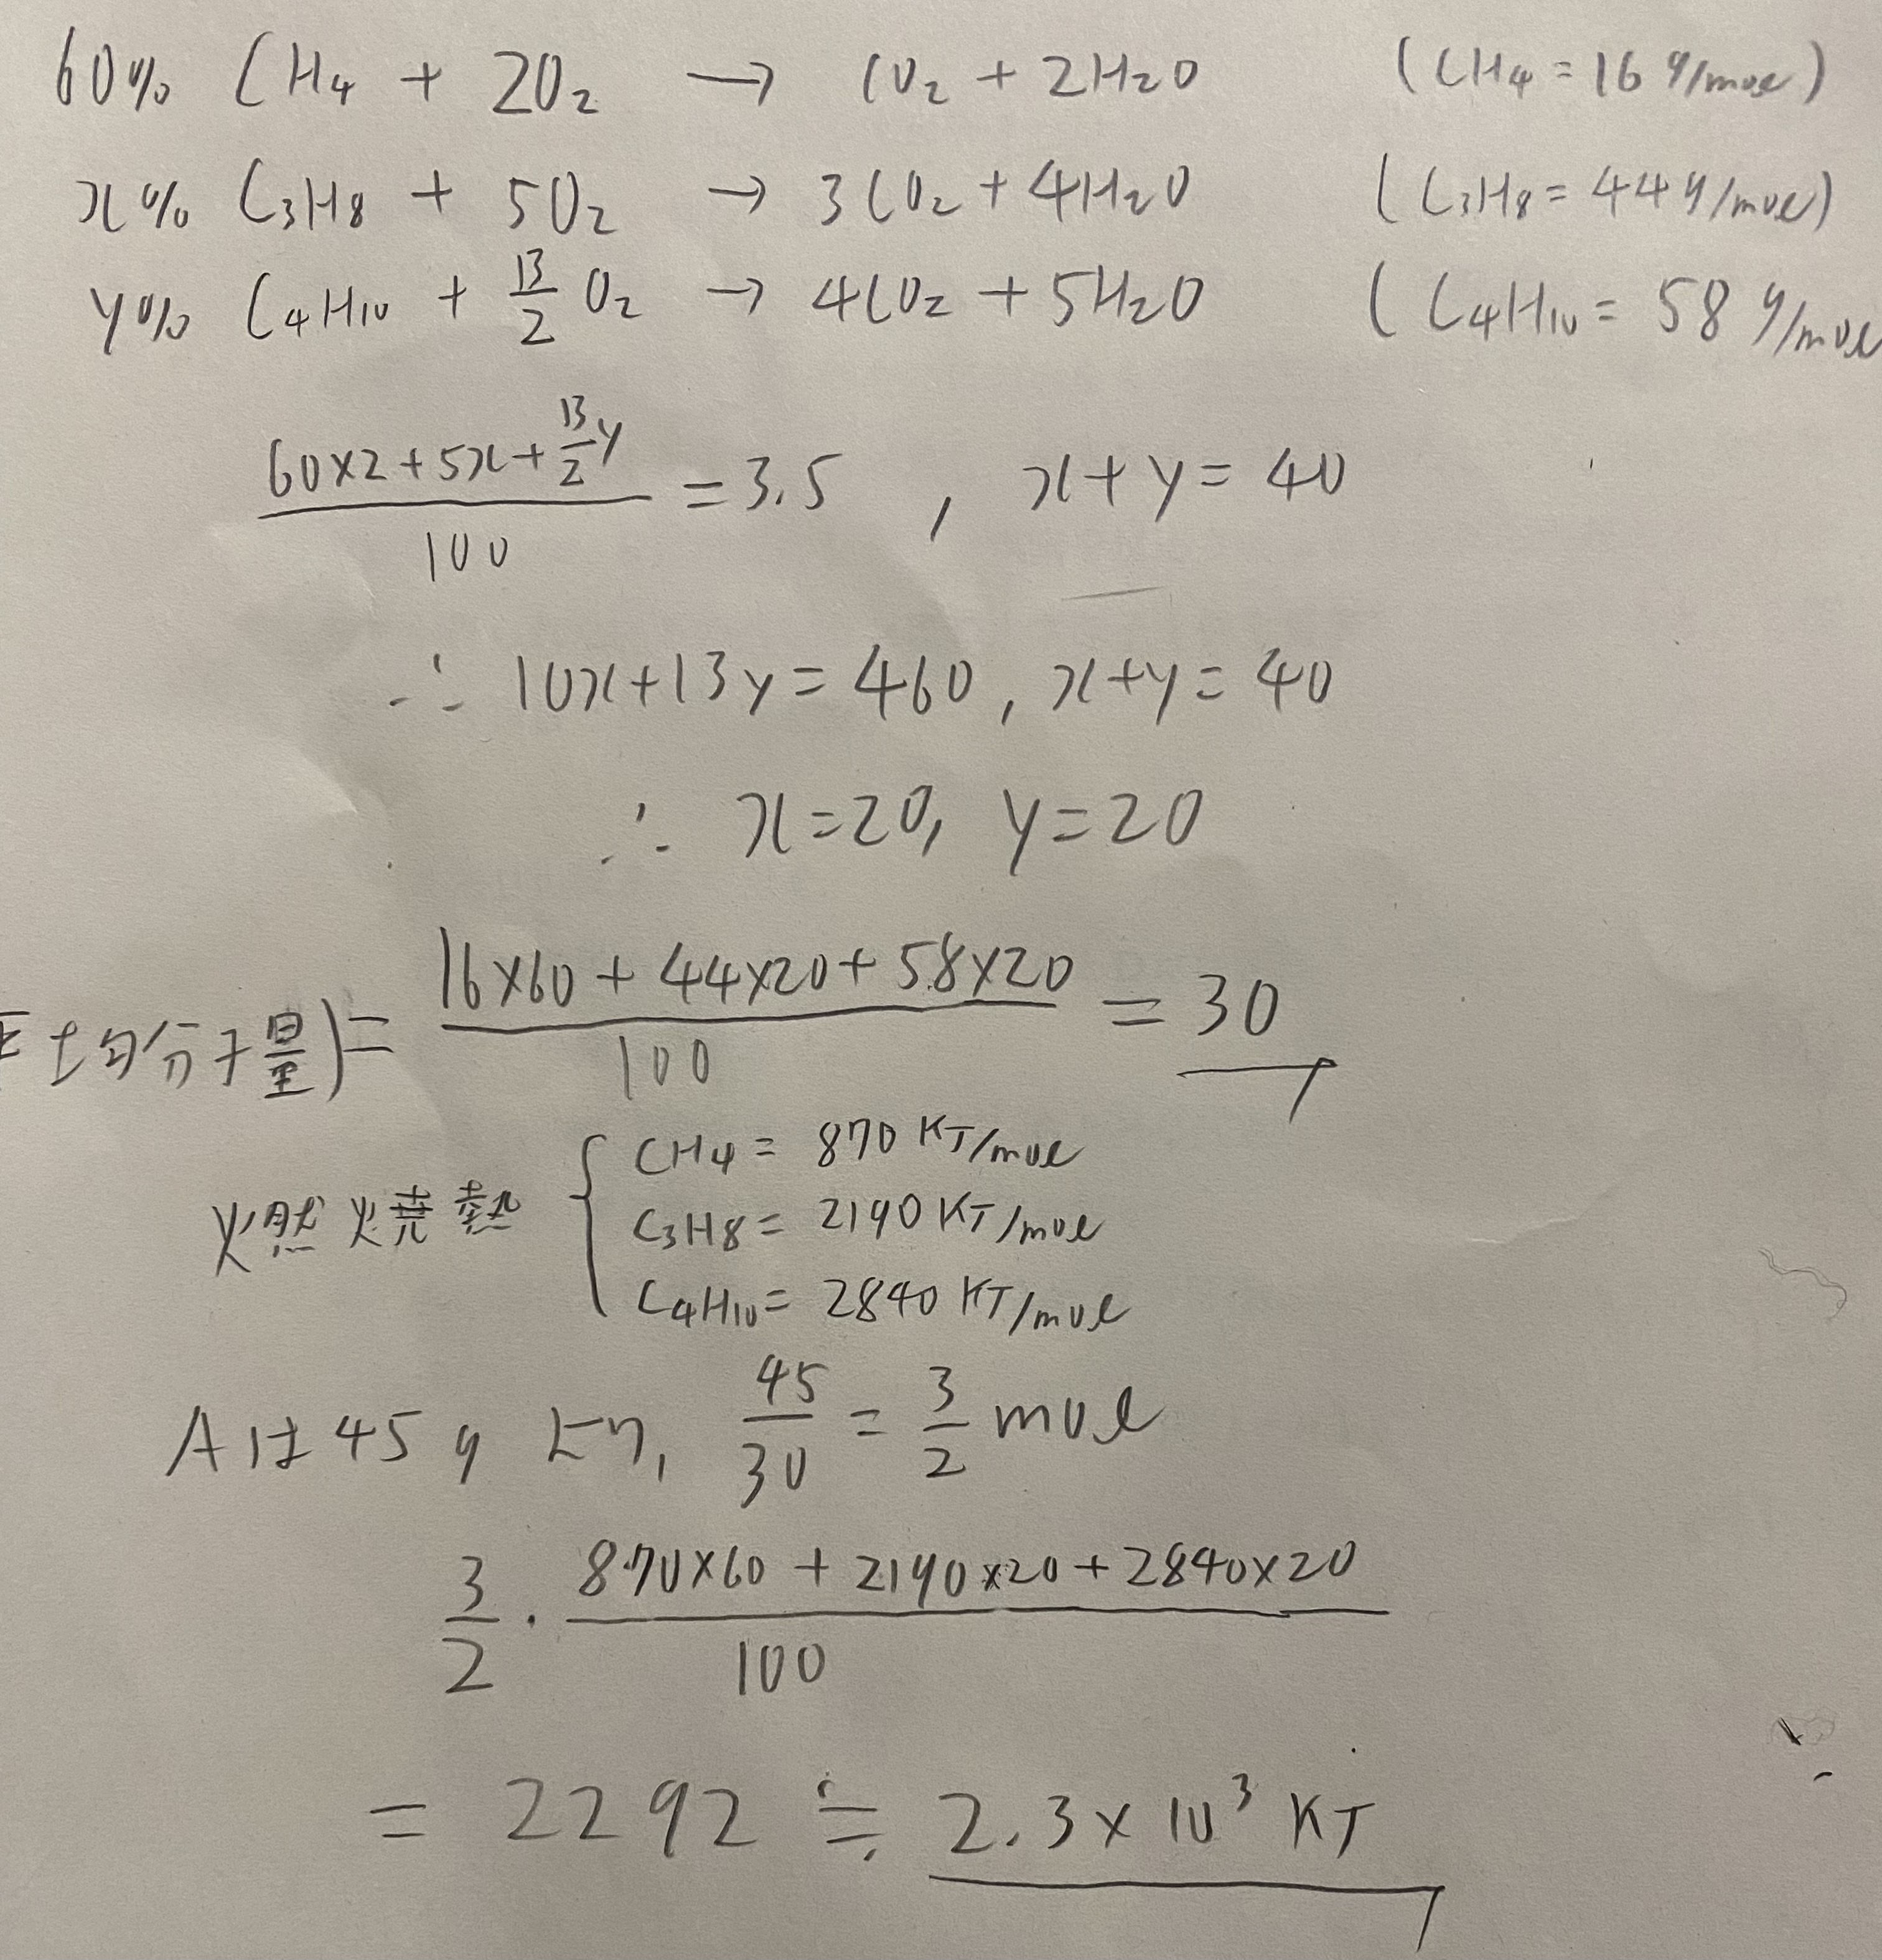 60% CH₄ + 2O₂ → CO₂ + 2H₂O (CH₄ = 16 g/mol)
x% C₃H₈ + 5O₂ → 3CO₂ + 4H₂O (C₃H₈ = 44 g/mol)
y% C₄H₁₀ + 13/2 O₂ → 4CO₂ + 5H₂O (C₄H₁₀ = 58 g/mol
(60×2 + 5x + 13/2 y)/100 = 3.5 , x + y = 40
∴ 10x + 13y = 460, x + y = 40
∴ x = 20, y = 20
平均分子量) = (16×60 + 44×20 + 58×20)/100 = 30
燃焼熱 { CH₄ = 870 KJ/mol
C₃H₈ = 2190 KJ/mol
C₄H₁₀ = 2840 KJ/mol
Aは45g より, 45/30 = 3/2 mol
3/2 · (870×60 + 2190×20 + 2840×20)/100
= 2292 ≒ 2.3 × 10³ KJ